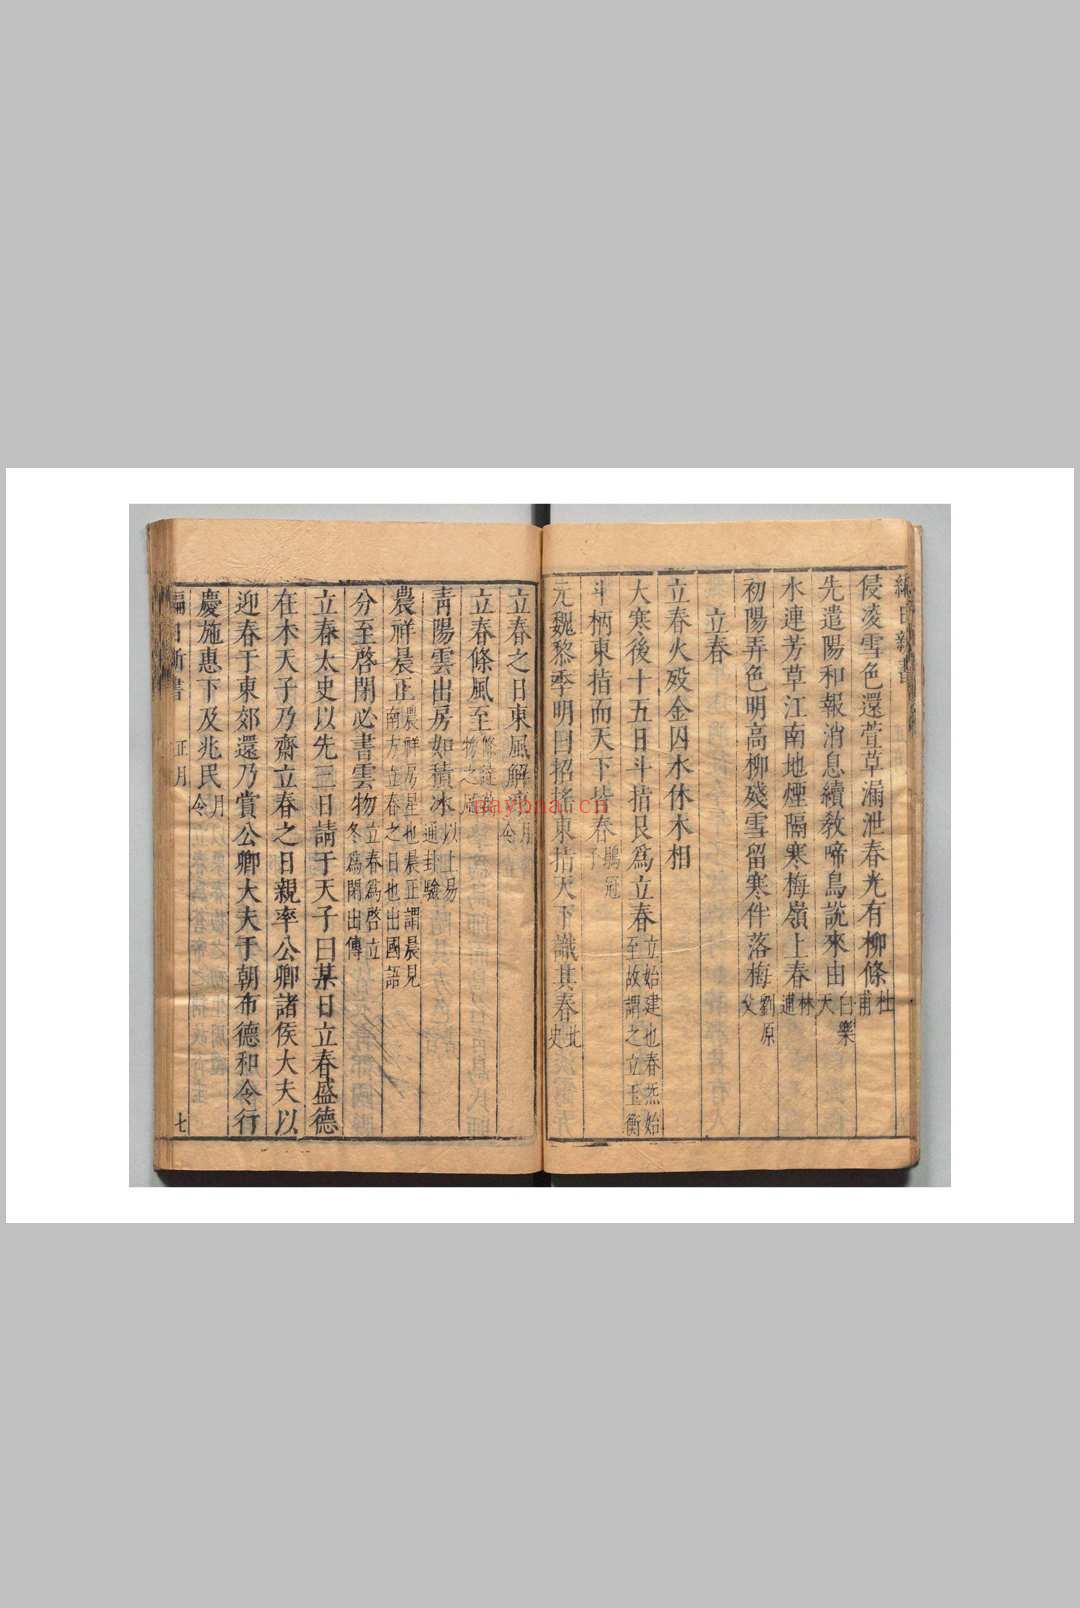 編日新書
侵凌雪色還萱草漏泄春光有柳條杜甫
先遣陽和報消息續教啼鳥說來由白樂天
水連芳草江南地煙隔寒梅嶺上春林逋
初陽弄色明高柳殘雪留寒伴落梅劉原父
立春
立春火歿金囚水休木相
大寒後十五日斗指艮爲立春立始建也春炁始至故謂之立玉衡
斗柄東指而天下皆春鶡冠子
元魏黎季明曰招搖東指天下識其春北史
立春之日東風解凍月令
立春條風至
靑陽雲出房如積冰以上易通卦驗
農祥晨正農祥房星也晨正謂晨見南方立春之日也出國語
分至啓閉必書雲物立春爲啓立冬爲閉出傳
立春太史以先三日請于天子曰某日立春盛德
在木天子乃齋立春之日親率公卿諸侯大夫以
迎春于東郊還乃賞公卿大夫于朝布德和令行
慶施惠下及兆民月令
編日新書 正月 七
naypna.cn